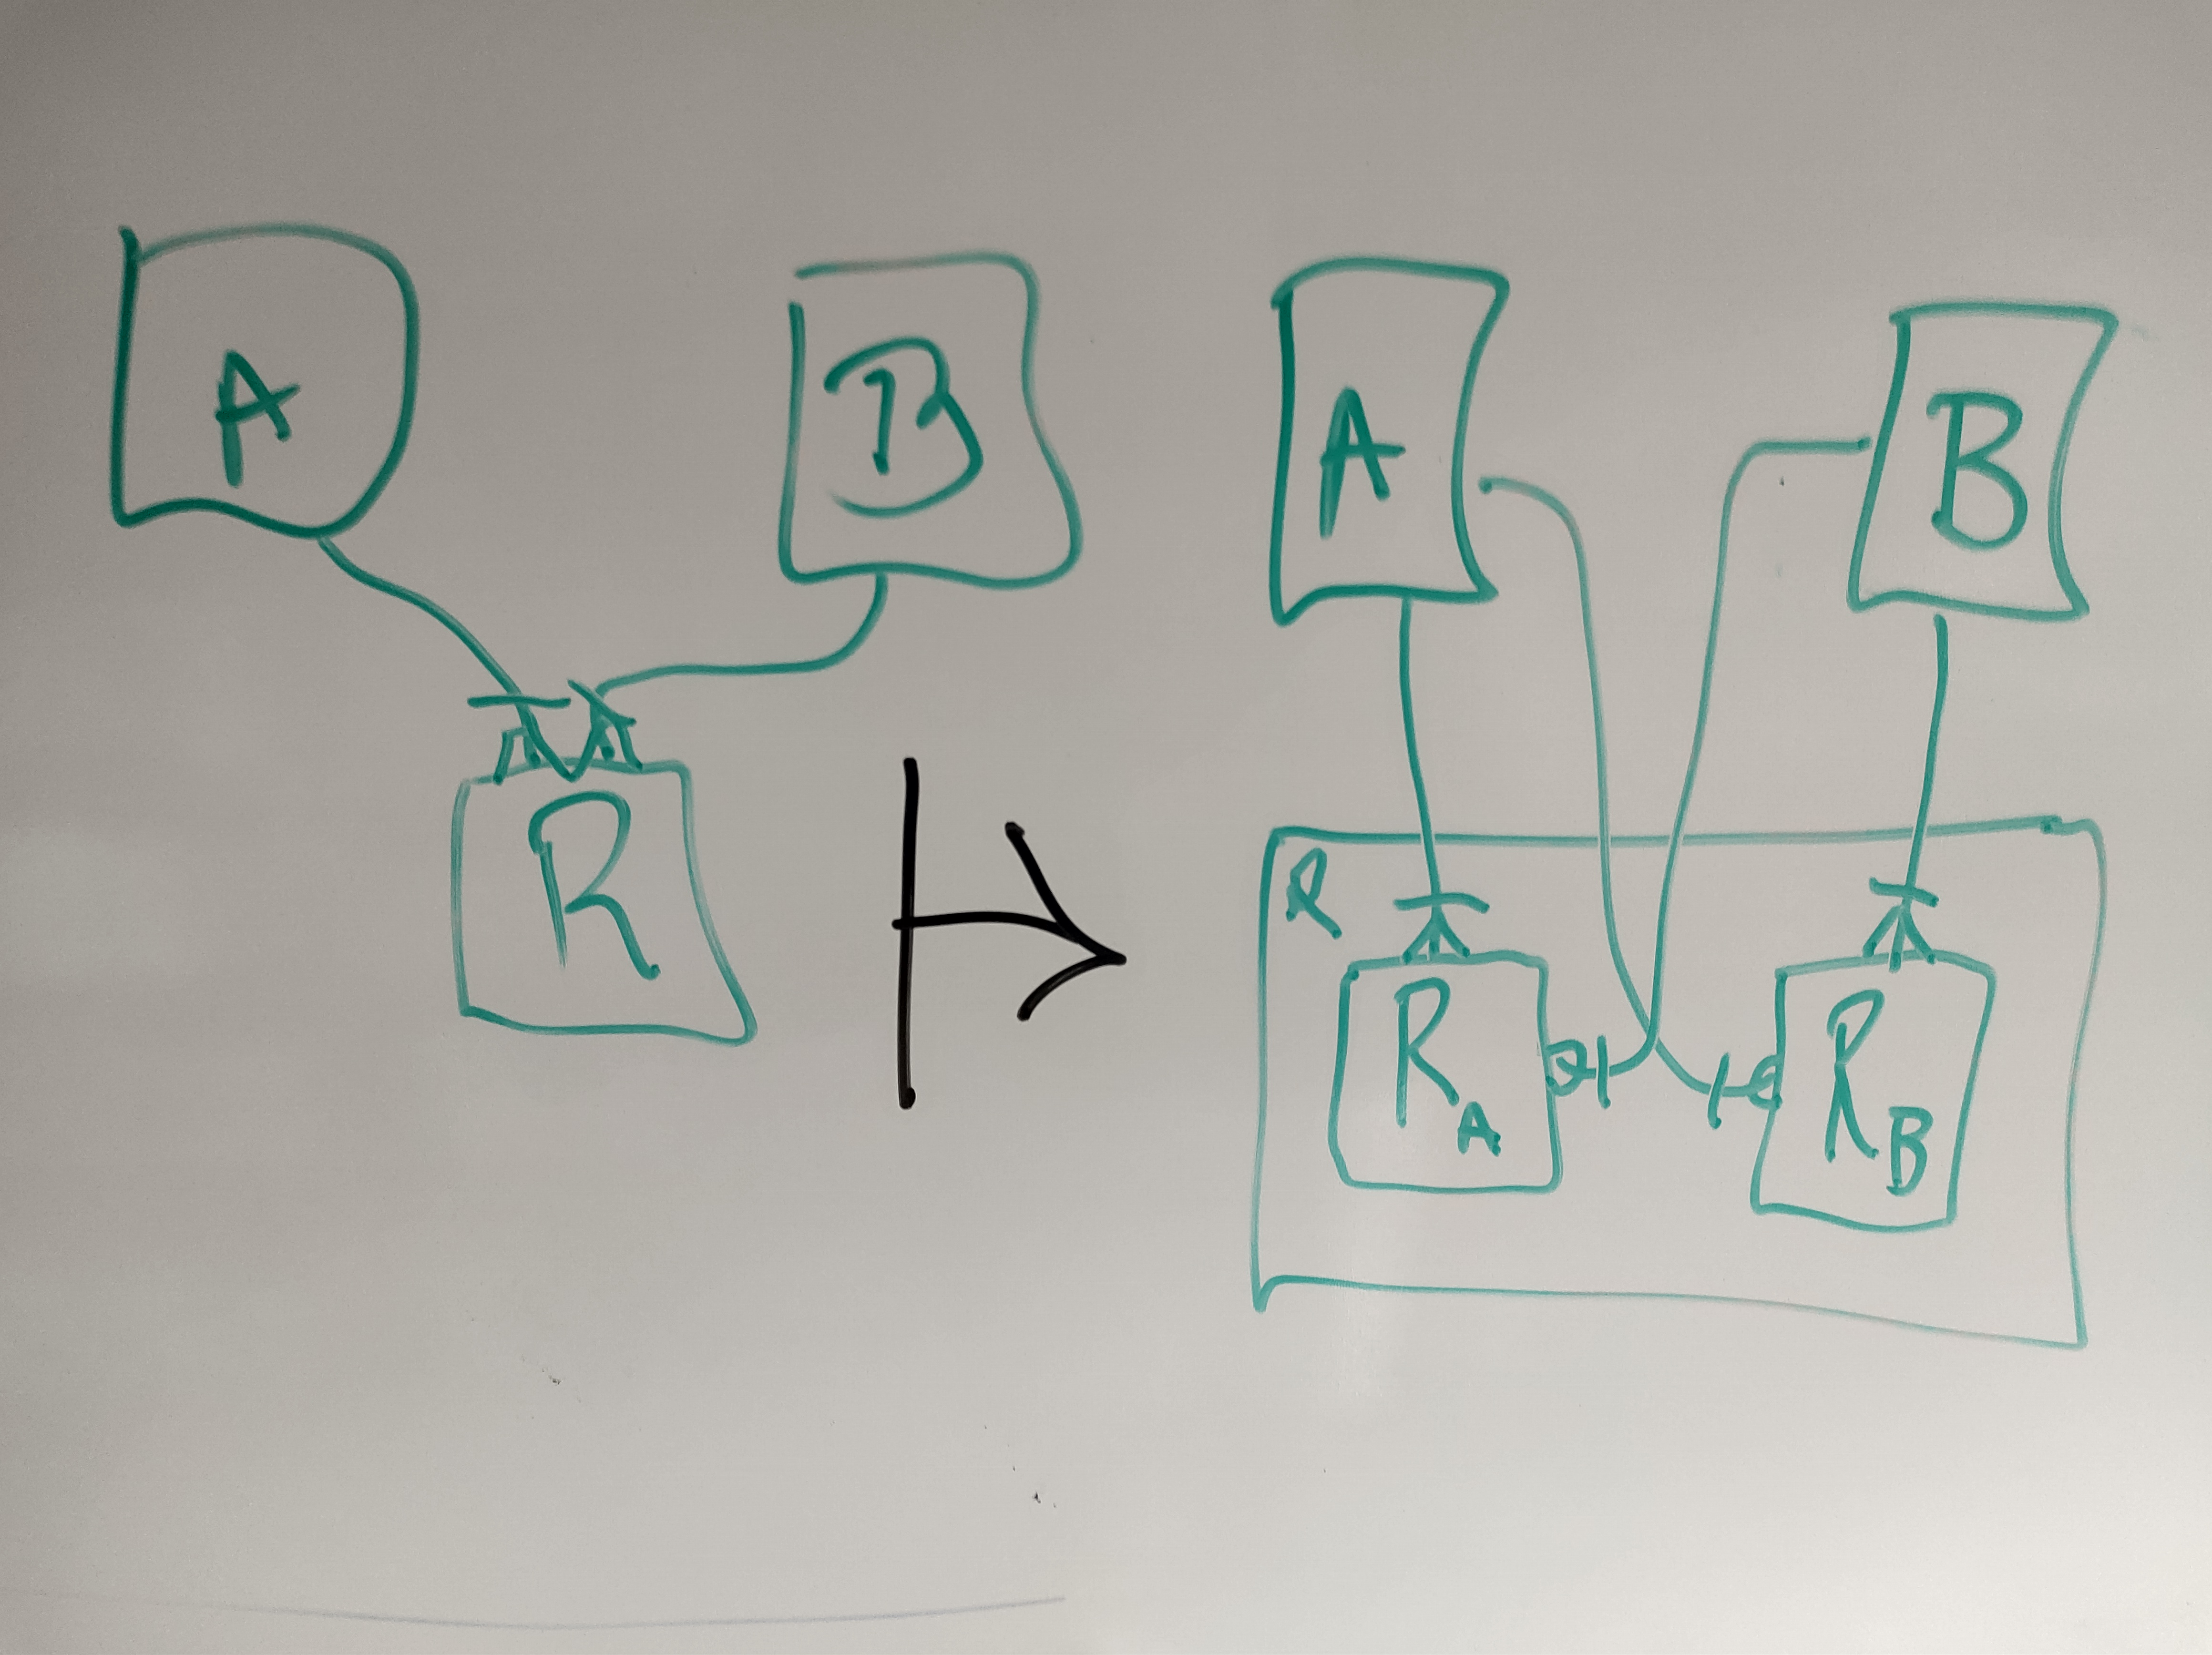 A
B
R
A
B
R
R_A
R_B